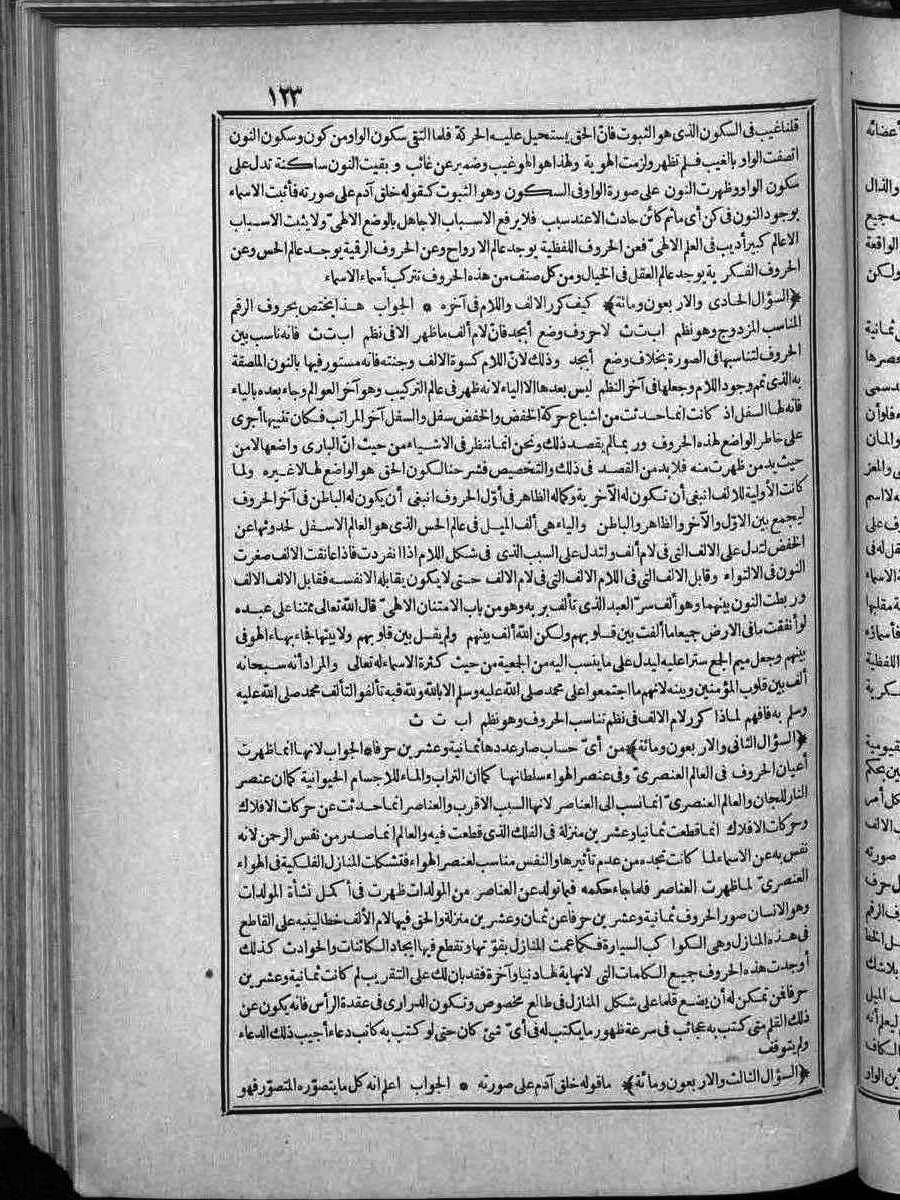 ١٢٣
قلناغيب فى السكون الذى هو الثبوت فانّ الحق يستحيل عليه الحركة فلما التقى سكون الواومن كون وسكون النون
اتصفت الواو بالغيب فلم تظهر ولزمت الهوية ولهذا هو الهو غيب وضمير عن غائب و بقيت النون ساكنة تدل على
سكون الواو وظهرت النون على صورة الواو فى السكون وهو الثبوت كقوله خلق آدم على صورته فأثبت الاسماء
بوجود النون فى كن أى ما ثم كائن حادث الاعند سبب فلا يرفع الاسباب الاجاهل بالوضع الالهىّ ولا يثبت الاسباب
الاعالم كبير أديب فى العلم الالهىّ فعن الحروف اللفظية يوجد عالم الارواح وعن الحروف الرقمية يوجد عالم الحس وعن
الحروف الفكرية يوجد عالم العقل فى الخيال ومن كل صنف من هذه الحروف تتركب أسماء الاسماء
﴿السؤال الحادى والاربعون ومائة﴾ كيف كرر الالف واللام فى آخره * الجواب هذا يختص بحروف الرقم
المناسب المزدوج وهو نظم اب ت ث لاحروف وضع أبجد فانّ لام ألف ما ظهر الا فى نظم اب ت ث فانه ناسب بين
الحروف لتناسبها فى الصورة بخلاف وضع أبجد وذلك لانّ اللام كسوة الالف وجنته فانه مستور فيها بالنون الملصقة
به الذى تم وجود اللام وجعلها فى آخر النظم ليس بعدها الا الياء لانه ظهر فى عالم التركيب وهو آخر العوالم وجاء بعده بالياء
فانه لها السفل اذ كانت انما حدثت من اشباع حركة الخفض والخفض سفل والسفل آخر المراتب فكان تنبيها أجرى
على خاطر الواضع لهذه الحروف وربما لم يقصد ذلك ونحن انما ننظر فى الاشياء من حيث انّ البارى واضعها لا من
حيث يد من ظهرت منه فلا بد من القصد فى ذلك والتخصيص فشرحنا لكون الحق هو الواضع لها لا غيره ولما
كانت الأولية للالف انبغى أن تكون له الآخرية وكما له الظاهر فى أوّل الحروف انبغى أن يكون له الباطن فى آخر الحروف
ليجمع بين الاوّل والآخر والظاهر والباطن والياء هى ألف الميل فى عالم الحس الذى هو العالم الاسفل لحدوثها عن
الخفض لتدل على الالف التى فى لام ألف ولتدل على السبب الذى فى شكل اللام اذا انفردت فاذا عانقت الالف صغرت
النون فى الالتواء وقابل الالف التى فى اللام الالف التى فى لام الالف حتى لا يكون يقابله الانفسه فقابل الالف الالف
وربطت النون بينهما وهو ألف سرّ العبد الذى تألف بربه وهو من باب الامتنان الالهىّ قال الله تعالى ممتنا على عبده
لو أنفقت ما فى الارض جميعا ما ألفت بين قلوبهم ولكن الله ألف بينهم ولم يقل بين قلوبهم ولا بينها فجاء بهاء الهو فى
بينهم وجعل ميم الجمع سترا عليه ليدل على ما ينسب اليه من الجمعية من حيث كثرة الاسماء له تعالى والمراد أنه سبحانه
ألف بين قلوب المؤمنين وبينه لانهم ما اجتمعوا على محمد صلى الله عليه وسلم الا بالله ولله فبه تألفوا لتألف محمد صلى الله عليه
وسلم به فافهم لماذا كرر لام الالف فى نظم تناسب الحروف وهو نظم اب ت ث
﴿السؤال الثانى والاربعون ومائة﴾ من أىّ حساب صار عددها ثمانية وعشرين حرفا * الجواب لانها انما ظهرت
أعيان الحروف فى العالم العنصرىّ وفى عنصر الهواء سلطانها كما ان التراب والماء للاجسام الحيوانية كما ان عنصر
النار للجان والعالم العنصرىّ انما نسب الى العناصر لانها السبب الاقرب والعناصر انما حدثت عن حركات الافلاك
وحركات الافلاك انما قطعت ثمانيا وعشرين منزلة فى الفلك الذى قطعت فيه والعالم انما صدر من نفس الرحمن لانه
نفس به عن الاسماء لما كانت تجده من عدم تأثيرها والنفس مناسب لعنصر الهواء فتشكلت المنازل الفلكية فى الهواء
العنصرىّ لما ظهرت العناصر فلما جاء حكمه فيما تولد عن العناصر من المولدات ظهرت فى أكمل نشأة المولدات
وهو الانسان صور الحروف ثمانية وعشرين حرفا عن ثمان وعشرين منزلة والحق فيها لام الألف خطا لينبه على القاطع
فى هذه المنازل وهى الكواكب السيارة فكما عمت المنازل بقوّتها وتقطع فيها ايجاد الكائنات والحوادث كذلك
أوجدت هذه الحروف جميع الكلمات التى لا نهاية لها دنيا وآخرة فقد بان لك على التقريب لم كانت ثمانية وعشرين
حرفا فمن تمكن له أن يضع قلما على شكل المنازل فى طالع مخصوص وتكون الدرارى فى عقدة الرأس فانه يكون عن
ذلك القلم متى كتب به عجائب فى سرعة ظهور ما يكتب له فى أىّ شئ كان حتى لو كتب به كاتب دعاء أجيب ذلك الدعاء
ولم يتوقف
﴿السؤال الثالث والاربعون ومائة﴾ ما قوله خلق آدم على صورته * الجواب اعلم انه كل ما يتصوّره المتصوّر فهو
أعضائه
والذال
الواقعة
ولكن